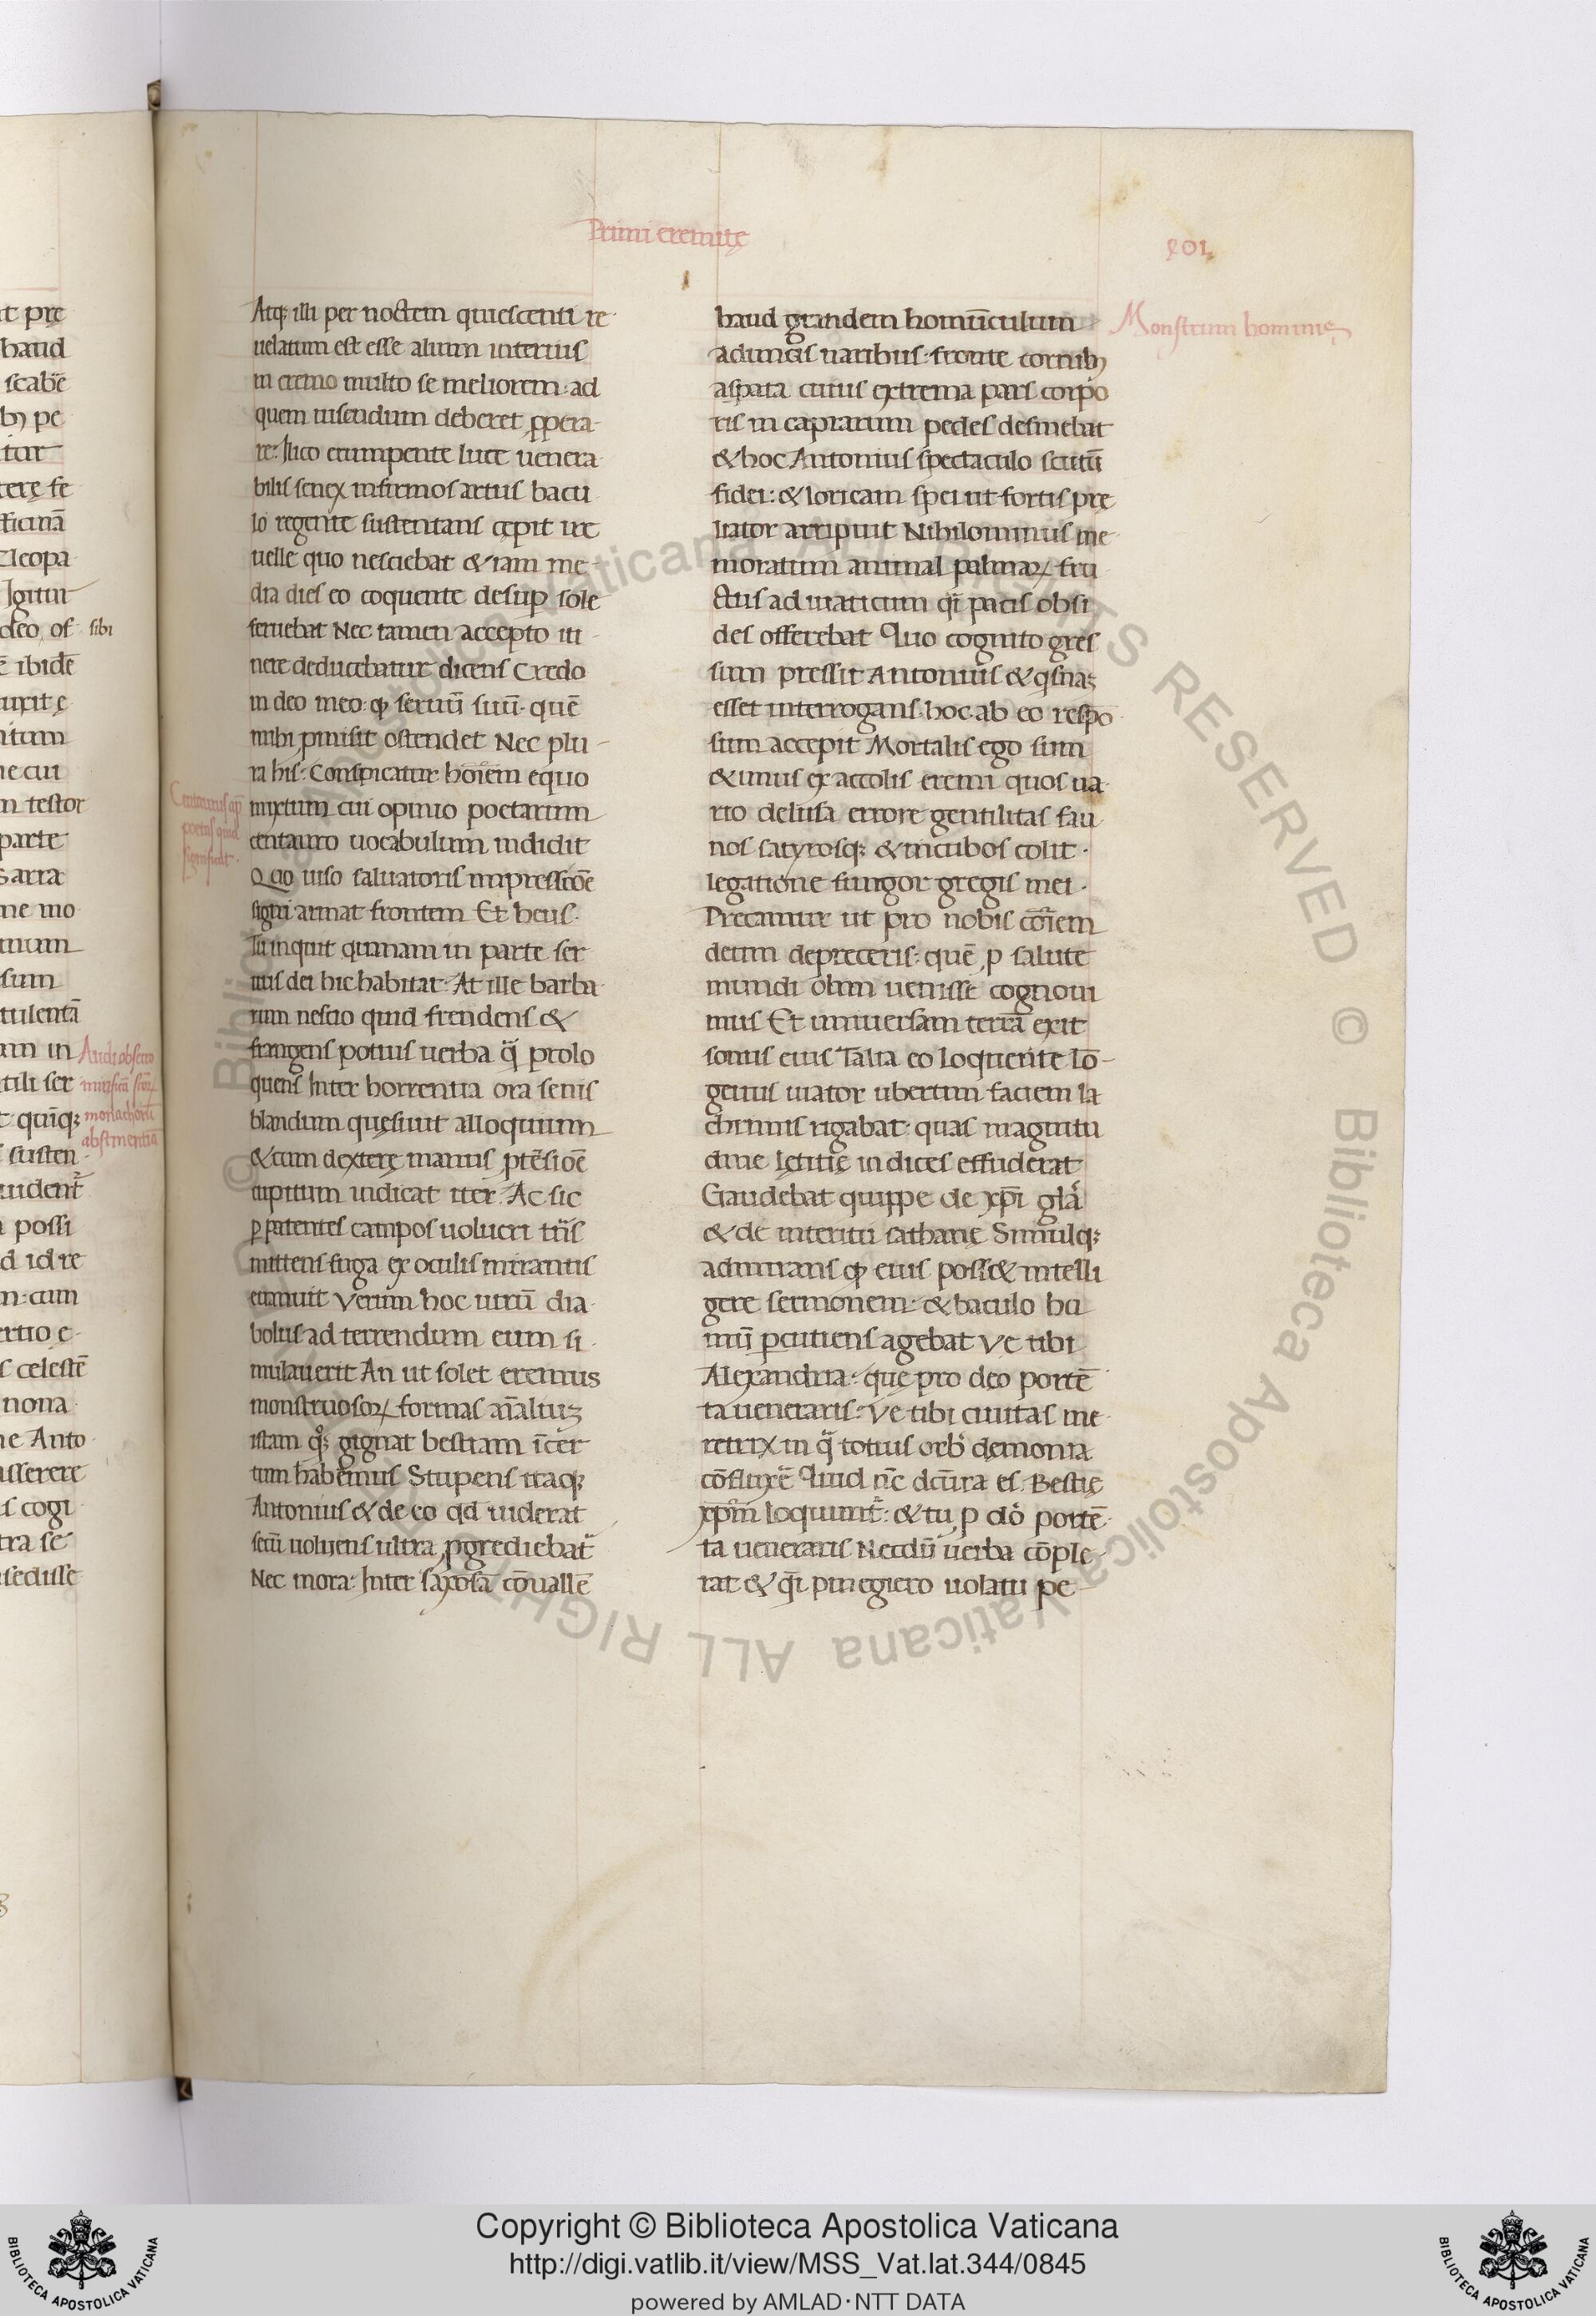 Primi eremitę
Atq; illi per noctem quiescenti re
uelatum est esse alium interius
in eremo multo se meliorem: ad
quem uisendum deberet ꝓpera-
re: Ilico erumpente luce uenera
bilis senex infirmos artus bacu
lo regente sustentans cępit ire
uelle quo nesciebat & iam me-
dia dies eo coquente desup̱ sole
feruebat Nec tamen accepto iti-
nere deducebatur dicens Credo
in deo meo: ꝙ seruū suū· quē
mihi ꝓmisit ostendet Nec plu-
ra his: Conspicatur hoīem equo
mixtum cui opinio poetarum
centauro uocabulum indidit
Q cio uiso saluatoris impressiōe
signi armat frontem Et heus·
Tu inquit quanam in parte ser
uus dei hic habitat· At ille barba
rum nescio quid frendens &
frangens potius uerba q̄ prolo
quens Inter horrentia ora senis
blandum quęsiuit alloquium
& cum dexterę manus ꝓtēsiōe
cupitum indicat iter. Ac sic
ꝑ patentes campos uolucri trās
mittens fuga ex oculis mirantis
euanuit Verum hoc utrū dia-
bolus ad terrendum eum si-
mulauerit An ut solet eremus
monstruosoꝝ formas aīaliuꝫ
istam qͦꝫ gignat bestiam īcer
tum habemus Stupens itaqꝫ
Antonius & de eo qd uiderat
secū uoluens ultra ꝓgrediebať
Nec mora: Inter saxosā cōuallē
haud grandem homūculum
aduncis naribus· fronte cornibꝫ
aspata cuius extrema pars corpo
ris in caprarum pedes desinebat
& hoc Antonius spectaculo scutū
fidei: & loricam spei ut fortis pre
liator arripuit Nihilominus me
moratum animal palmaꝝ fru
ctus ad uiaticum qī pacis obsi
des offerebat Quo cognito gres
sum pressit Antonius & qsnaꝫ
esset interrogans· hoc ab eo respō
sum accepit Mortalis ego sum
& unus ex accolis eremi quos ua-
rio delusa errore gentilitas fau
nos satyrosqꝫ & incubos colit·
legatione fungor gregis mei·
Precamur ut pro nobis cōiem
deum depreceris: quē ꝓ salute
mundi olim uenisse cognoui
mus Et uniuersam terrā exit
sonus eius Talia eo loquente lō-
geuus uiator ubertim faciem la
chrimis rigabat· quas magnitu
dine lętitię indices effuderat
Gaudebat quippe de xp̄i glā
& de interitu sathanę Simulqꝫ
admirans ꝙ eius poss& intelli
gere sermonem· & baculo hu
mū ꝑcutiens agebat Ve tibi
Alexandria: quę pro deo portē
ta ueneraris: Ve tibi ciuitas me
retrix in q̄ totius orb' demonia
cōfluxē Quid nc̄ dcūra es. Bestię
xp̄m loquunť: & tu ꝓ dō portē-
ta ueneraris Necdū uerba cōple-
rat & qī pinegiero uolatu pe-
Monstrum hominis
Centaurus apđ
poetas quid
significat·
Audi obsecro
mirificā scōꝝ
monachorū
abstinentiā
it pre
haud
scabē
bꝫ pe
itur
terę se
fficinā
Cleopa
Igitur
deo of· sibi
ē ibidē
nitum
ne cui
n testor
parte
sarra
me mo
sum
tulentā
am in
tili ser
t quīqꝫ
susten-
uident̃
a possi
d id re
n: cum
ertio e-
s celestē
nona
ne Anto-
asserere
is cogi
tra se
sedisse
Copyright © Biblioteca Apostolica Vaticana
http://digi.vatlib.it/view/MSS_Vat.lat.344/0845
powered by AMLAD·NTT DATA
BIBLIOTECA APOSTOLICA VATICANA
BIBLIOTECA APOSTOLICA VATICANA
© Biblioteca Apostolica Vaticana ALL RIGHTS RESERVED © Biblioteca Apostolica Vaticana ALL RIGHTS RESERVED